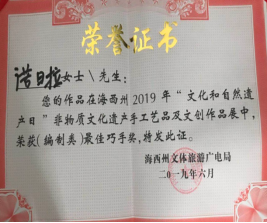 荣誉证书
诺日拉女士\先生:
您的作品在海西州2019年“文化和自然遗
产日”非物质文化遗产手工艺品及文创作品展中,
荣获(编制类)最佳巧手奖,特发此证。
海西州文体旅游广电局
二〇一九年六月